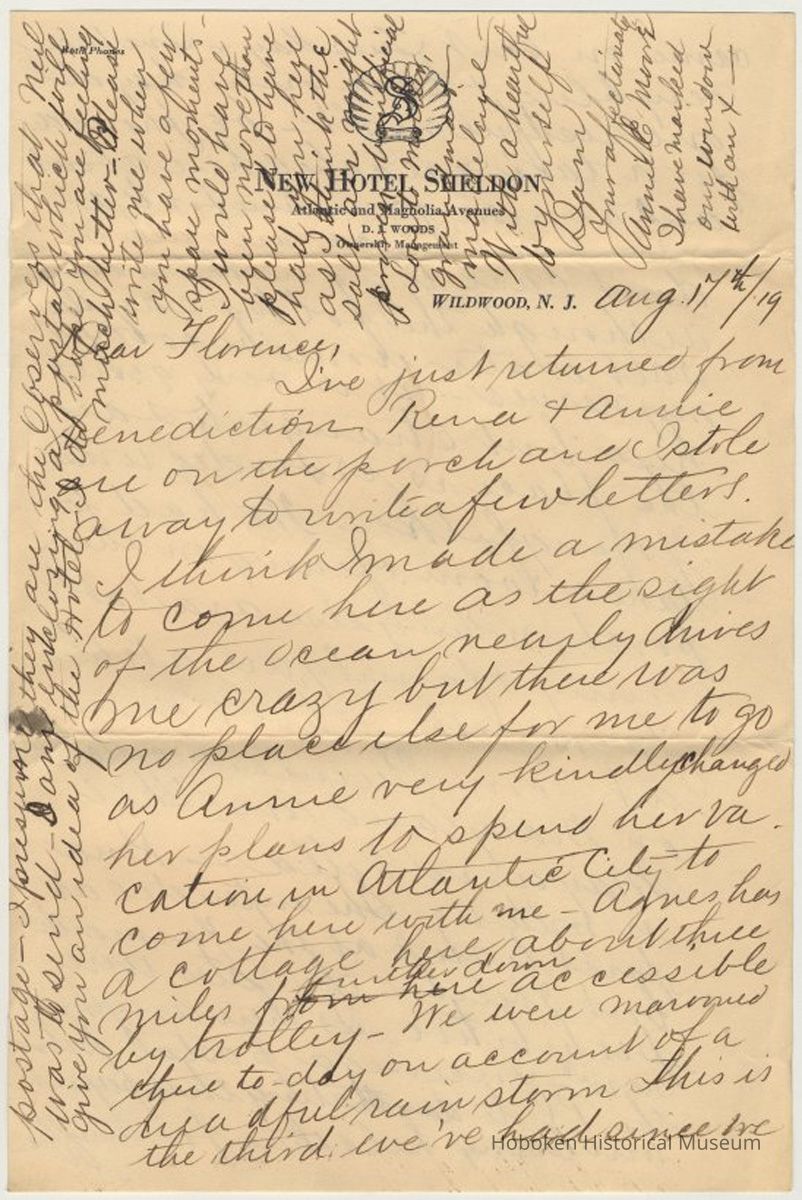 Both Phones
NEW HOTEL SHELDON
Atlantic and Magnolia Avenues
D. J. WOODS
Ownership Management
WILDWOOD, N. J. Aug. 17th/19
Dear Florence,
I've just returned from
Benediction Rena & Annie
are on the porch and I stole
away to write a few letters.
I think I made a mistake
to come here as the sight
of the ocean nearly drives
me crazy but there was
no place else for me to go
as Annie very kindly changed
her plans to spend her va-
cation in Atlantic City to
come here with me - Agnes has
a cottage here about three
miles further down
from here accessible
by trolley - We were marooned
there to-day on account of a
dreadful rain storm This is
the third we've had since we
postage - I presume they are the Observers that Neil
was to send - I am enclosing a postal which will
give you an idea of the Hotel - I do hope you are feeling
much better - Please
write me when
you have a few
spare moments -
I would have
been more than
pleased to have
had you here
as I think the
salt air might
prove beneficial
Love to
Grandma
Madeline -
With a heartful
to yourself
I am
Your affectionate
Annie E Moore
I have marked
our window
with an X -
Hoboken Historical Museum